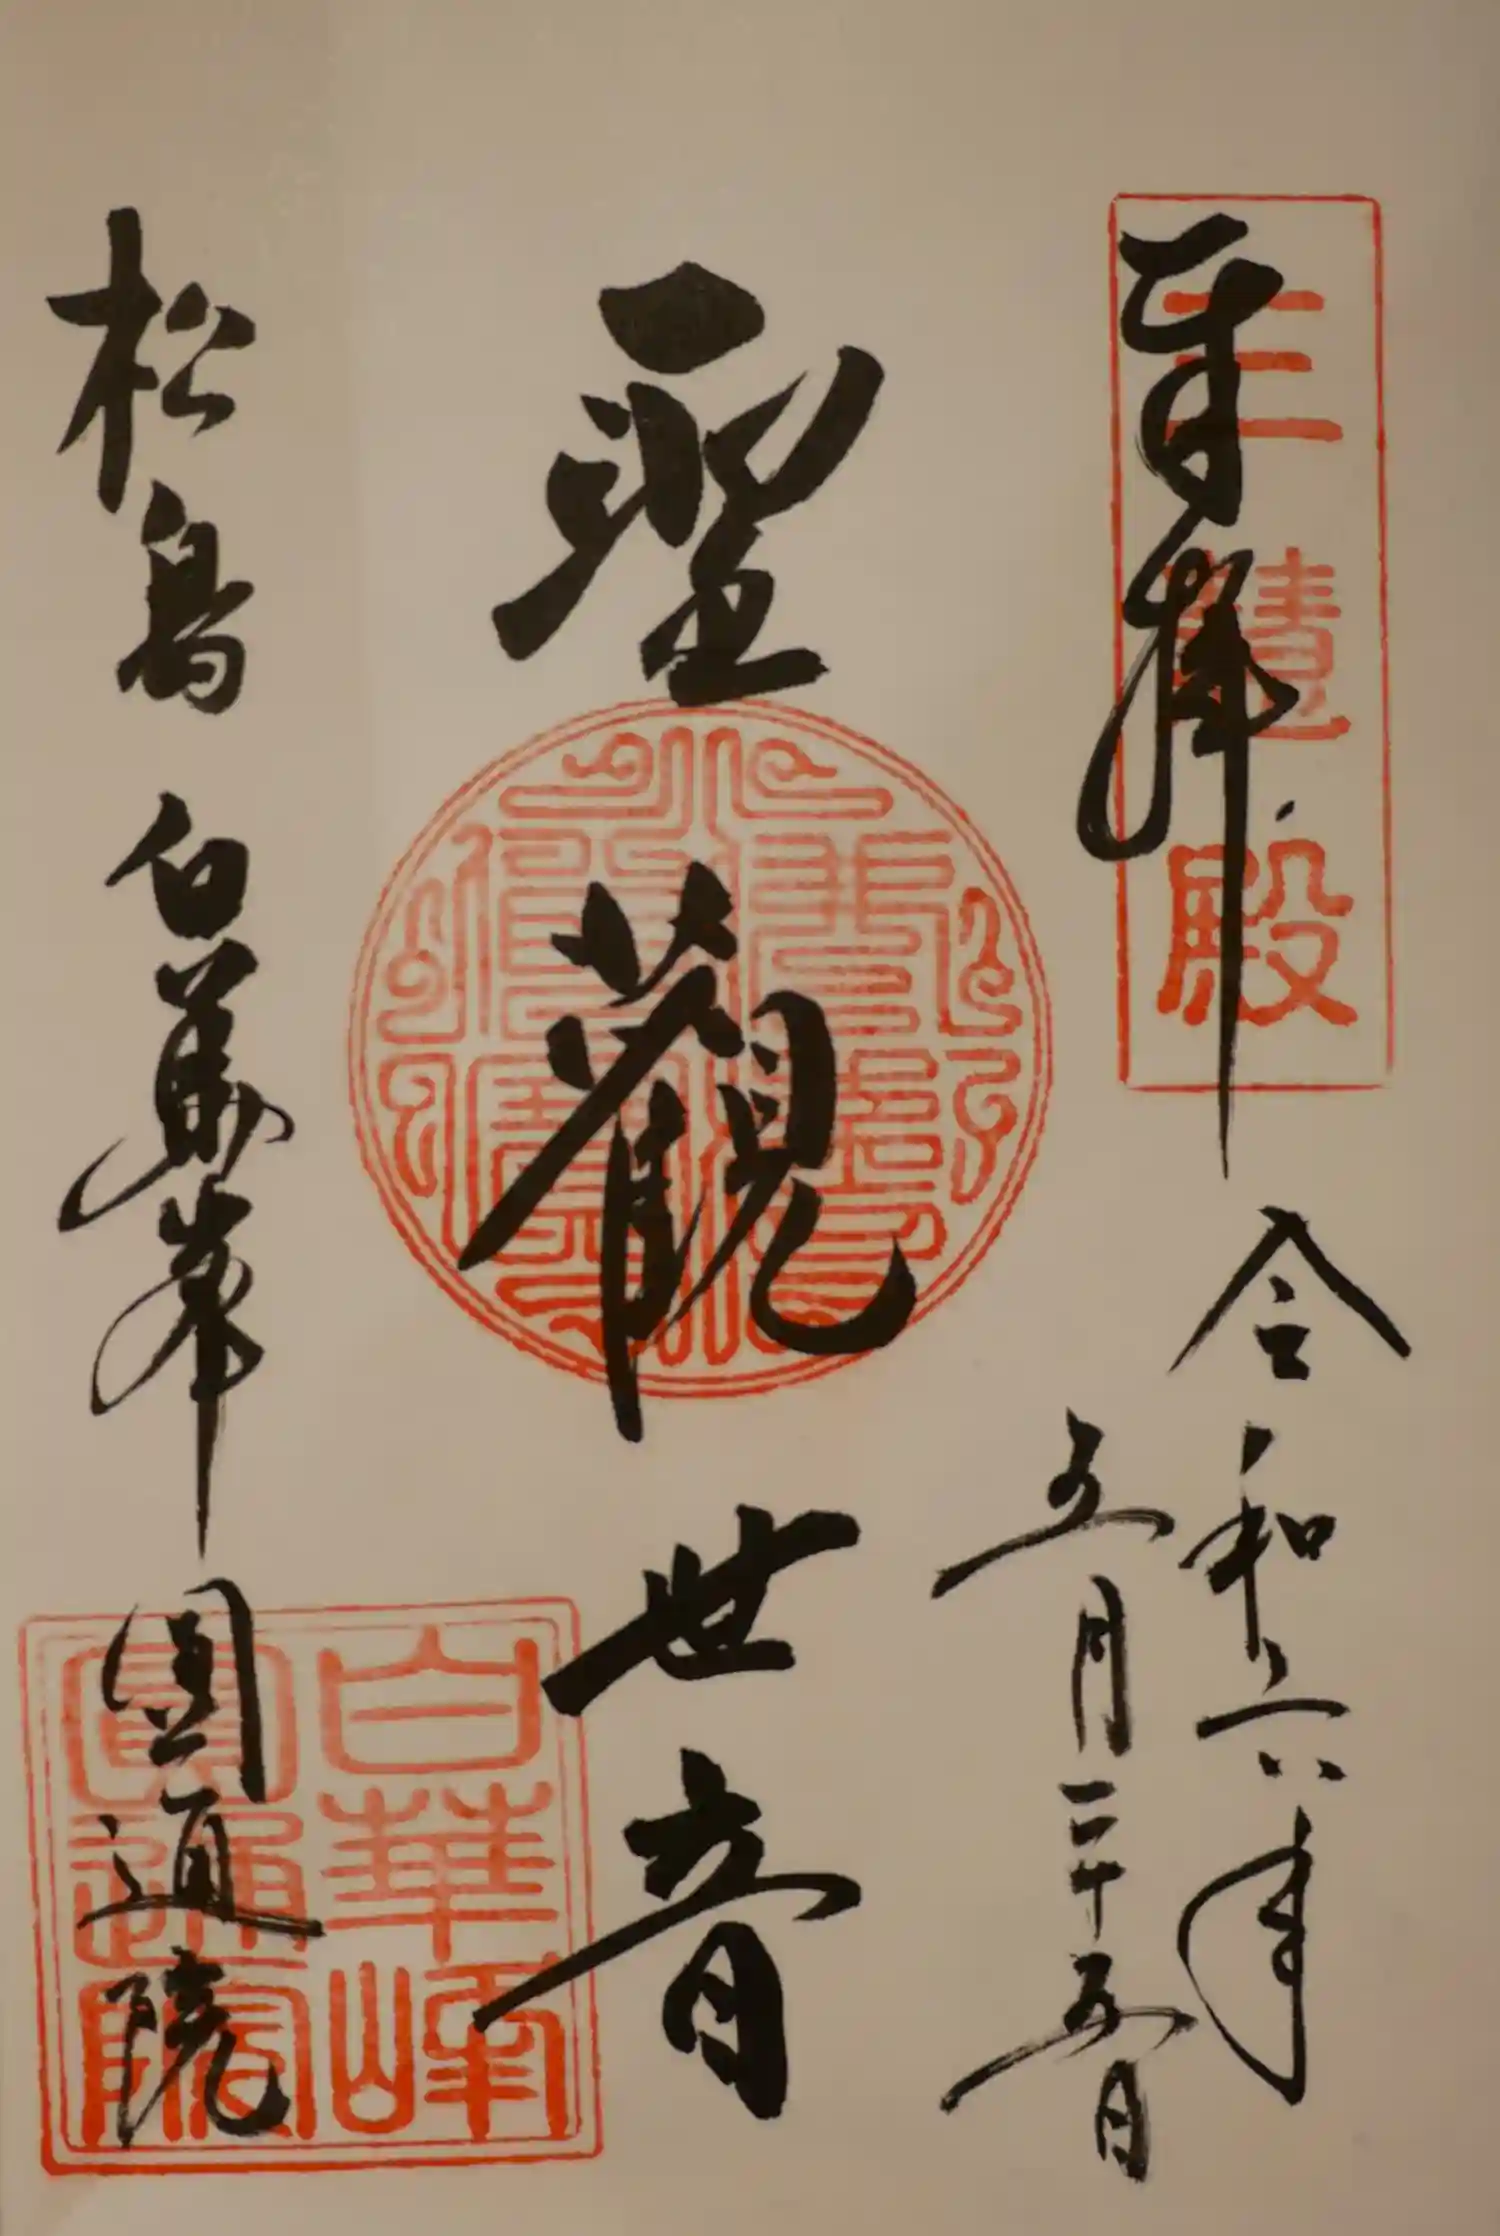 奉拝
三慧殿
令和六年
五月二十五日
聖觀世音
松島 白華峯 圓通院
白華峰
圓通院